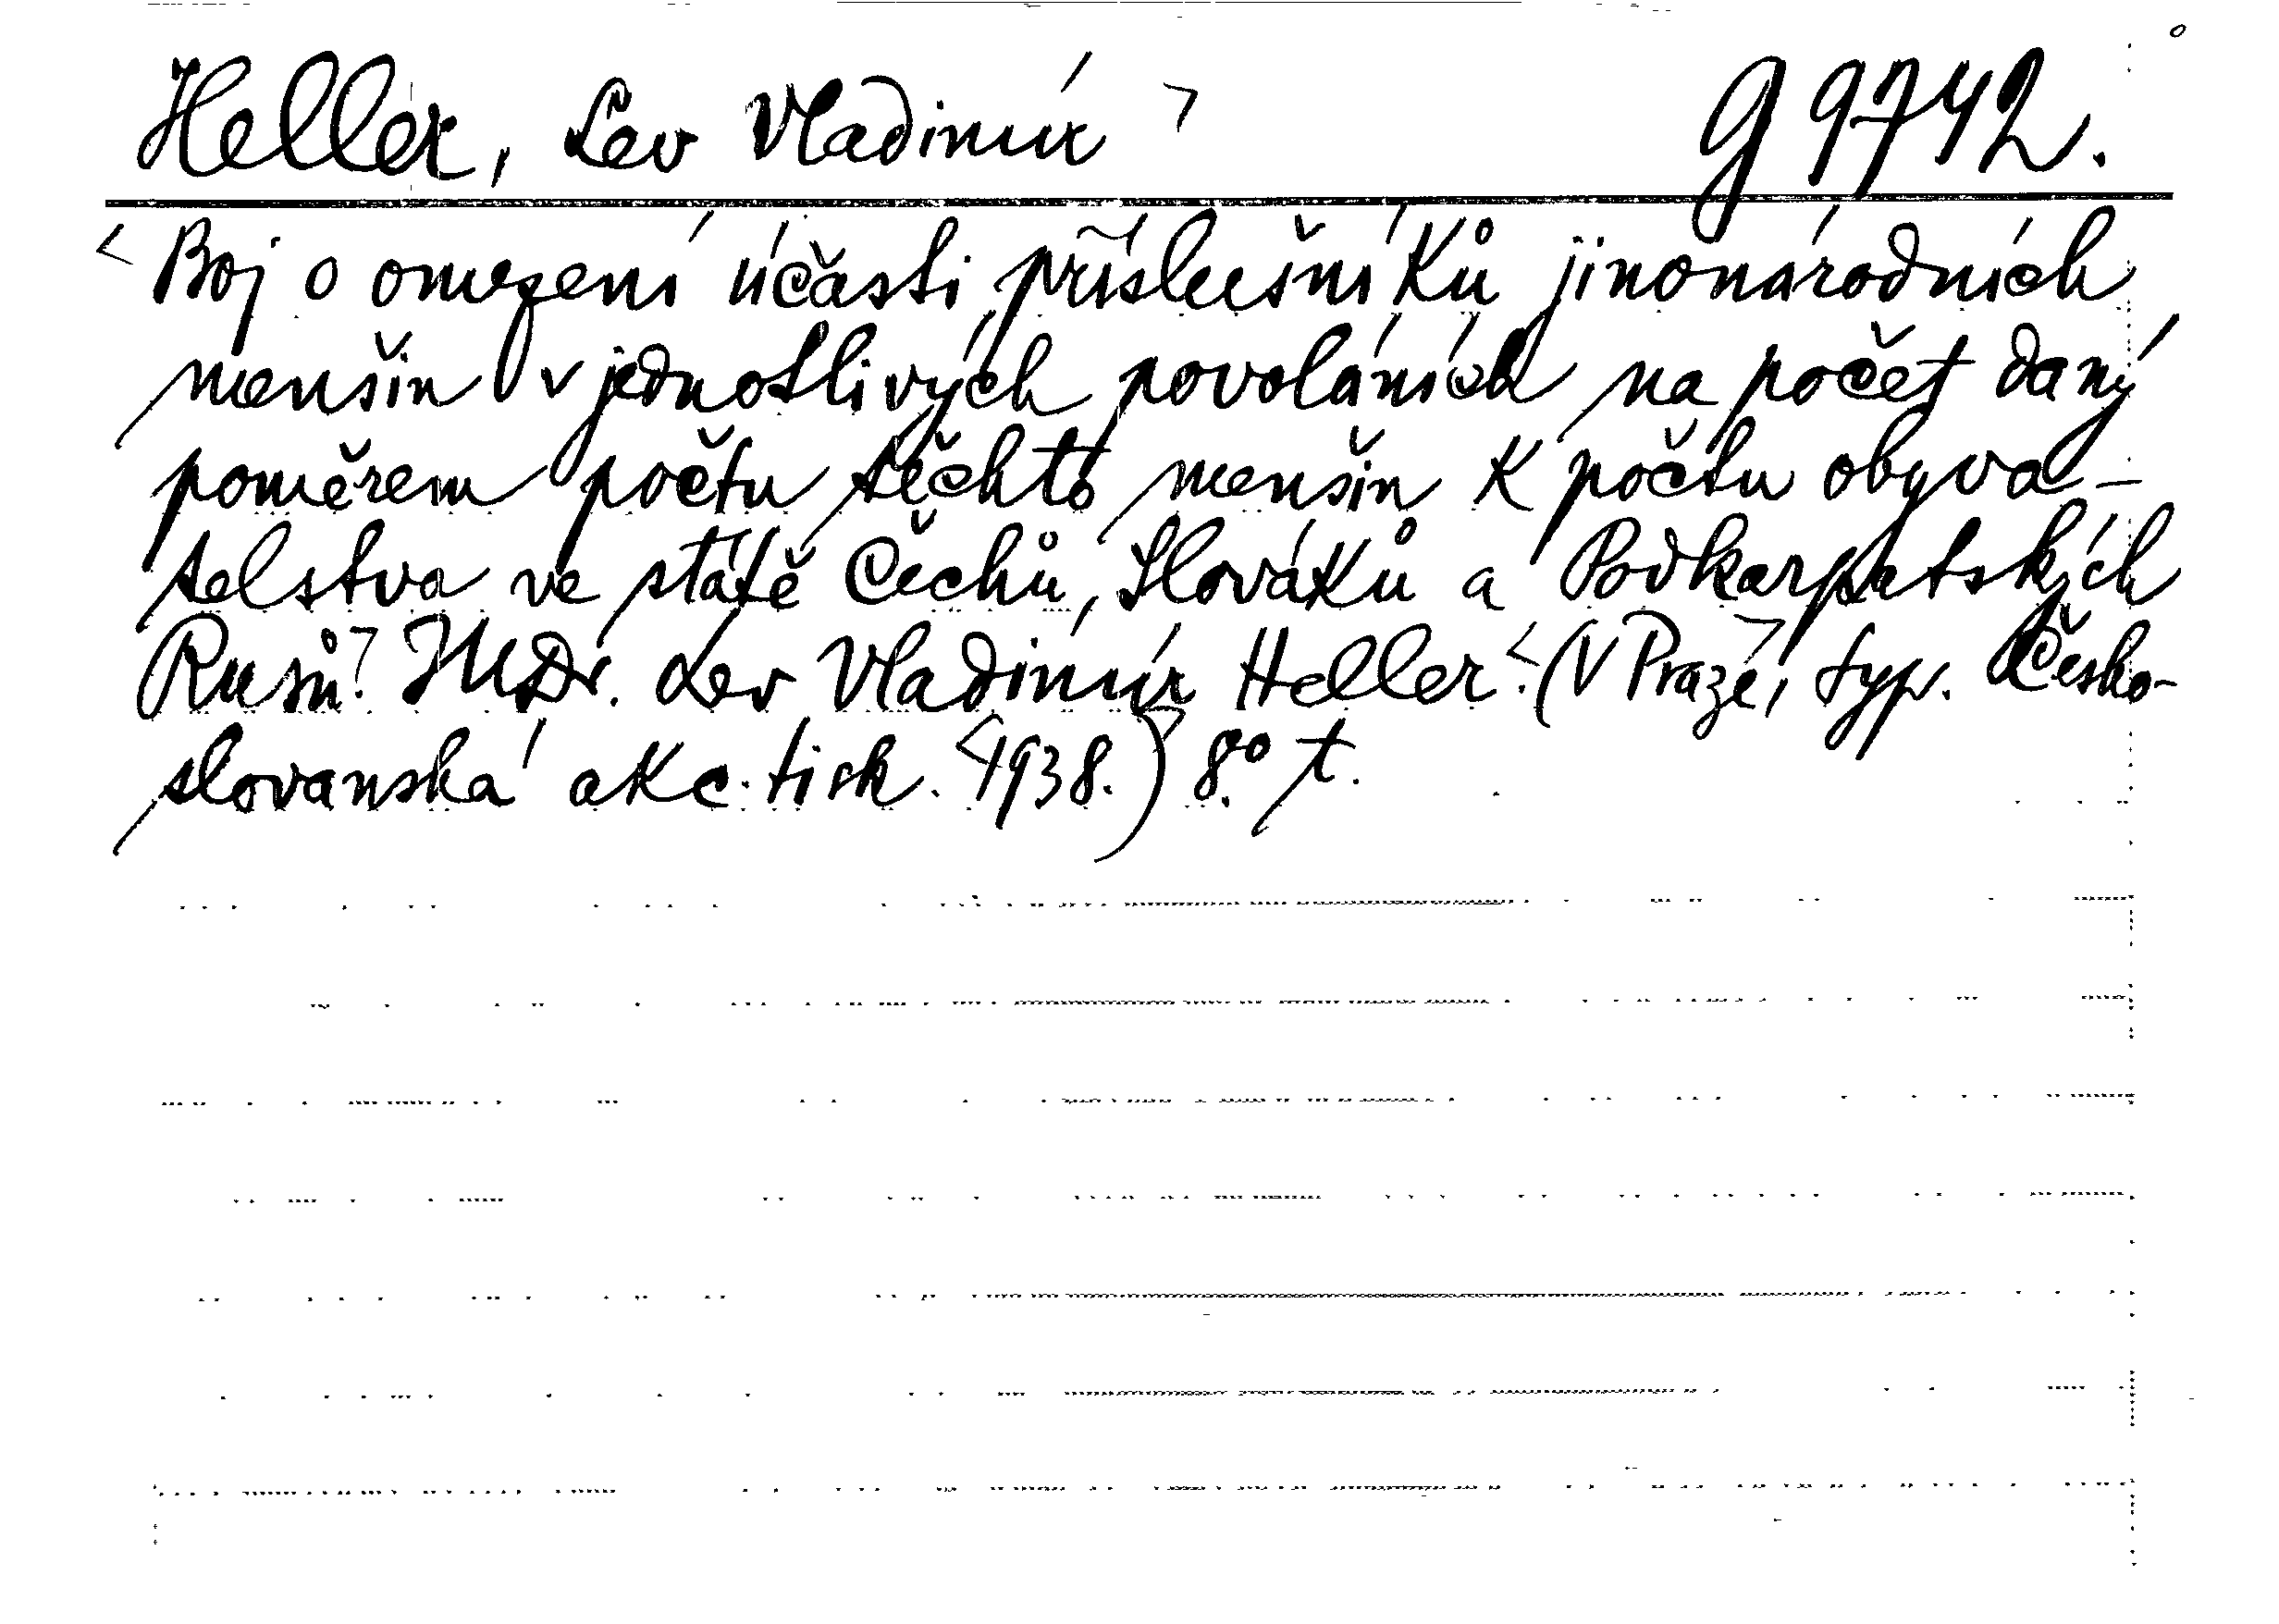 Heller, Lev Vladimír ꓶ G 9742.
< Boj o omezení účasti příslušníků jinonárodních
menšin v jednotlivých povoláních na počet daný
poměrem počtu těchto menšin k počtu obyva-
telstva ve státě Čechů, Slováků a Podkarpatských
Rusů. JUDr. Lev Vladimír Heller. (V Praze, typ. Česko-
slovanská akc. tisk. 1938.) 8.° t.